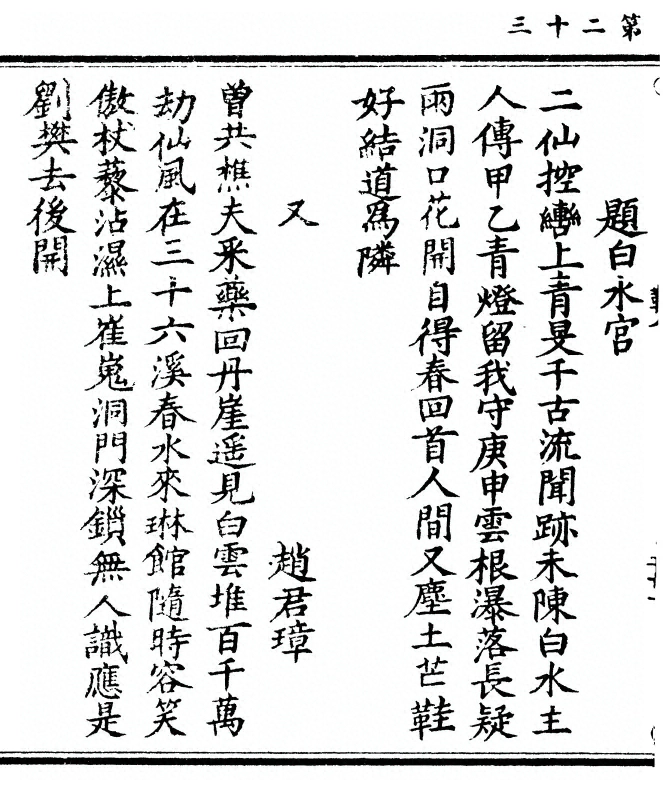 第二十三
題白水宫
二仙控轡上青旻千古流聞跡未陳白水主
人傳甲乙青燈留我守庚申雲根瀑落長疑
雨洞口花開自得春回首人間又塵土芒鞋
好結道爲隣
又
趙君璋
曽共樵夫采藥回丹崖遥見白雲堆百千萬
劫仙風在三十六溪春水來琳館隨時容笑
傲杖藜沾濕上崔嵬洞門深鎖無人識應是
劉樊去後開